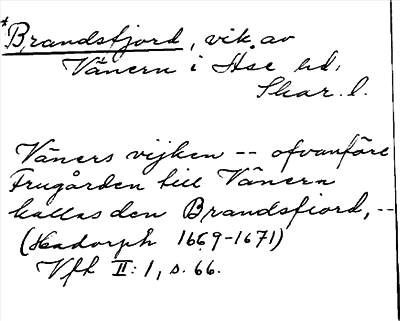 *Brandsfjord, vik av
Vänern i Åse hd,
Skar. l.
Väners vijken -- ofvanföre
Frugården till Vänern
kallas den Brandsfiord, --
(Hadorph 1669-1671)
Vft II: 1, s. 66.